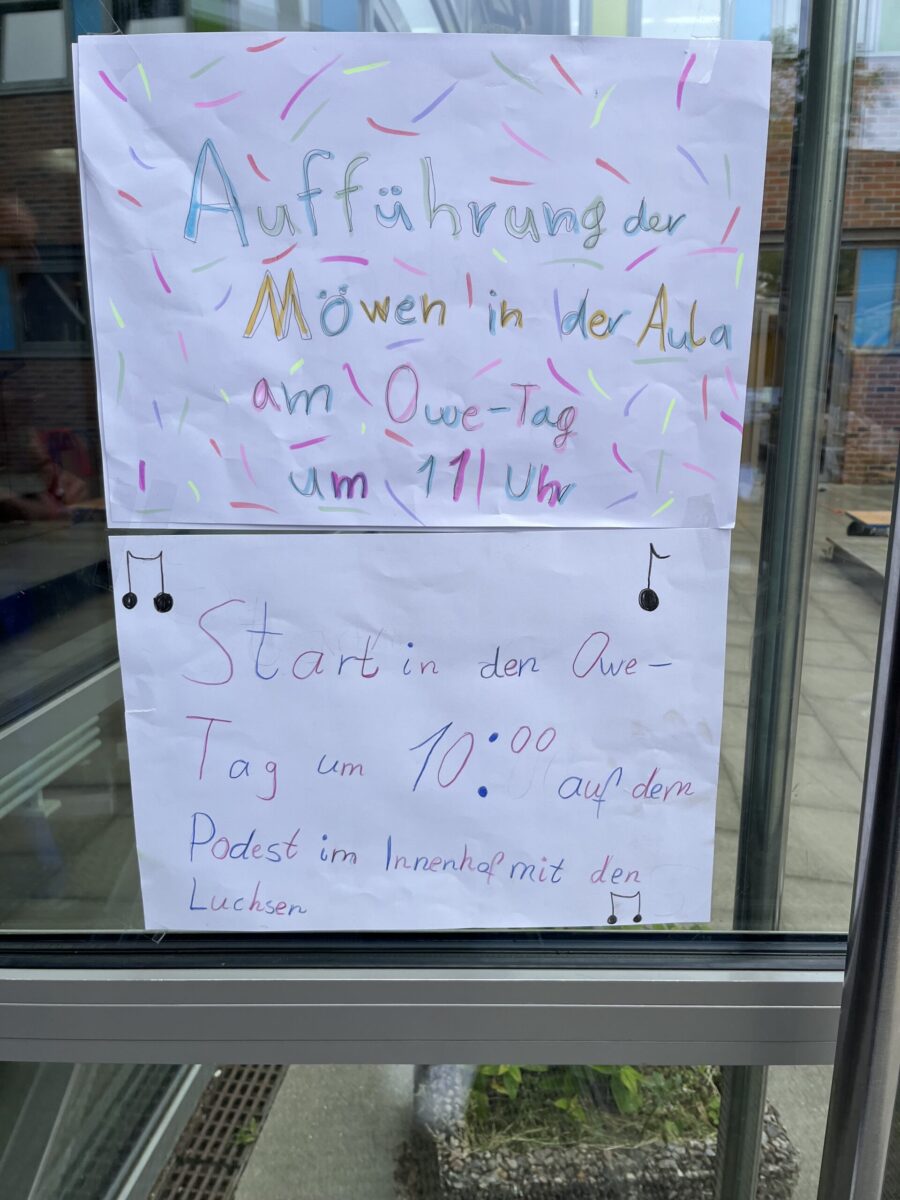 Aufführung der
Möwen in der Aula
am Owe-Tag
um 11 Uhr
Start in den Owe-
Tag um 10:00 auf dem
Podest im Innenhof mit den
Luchsen